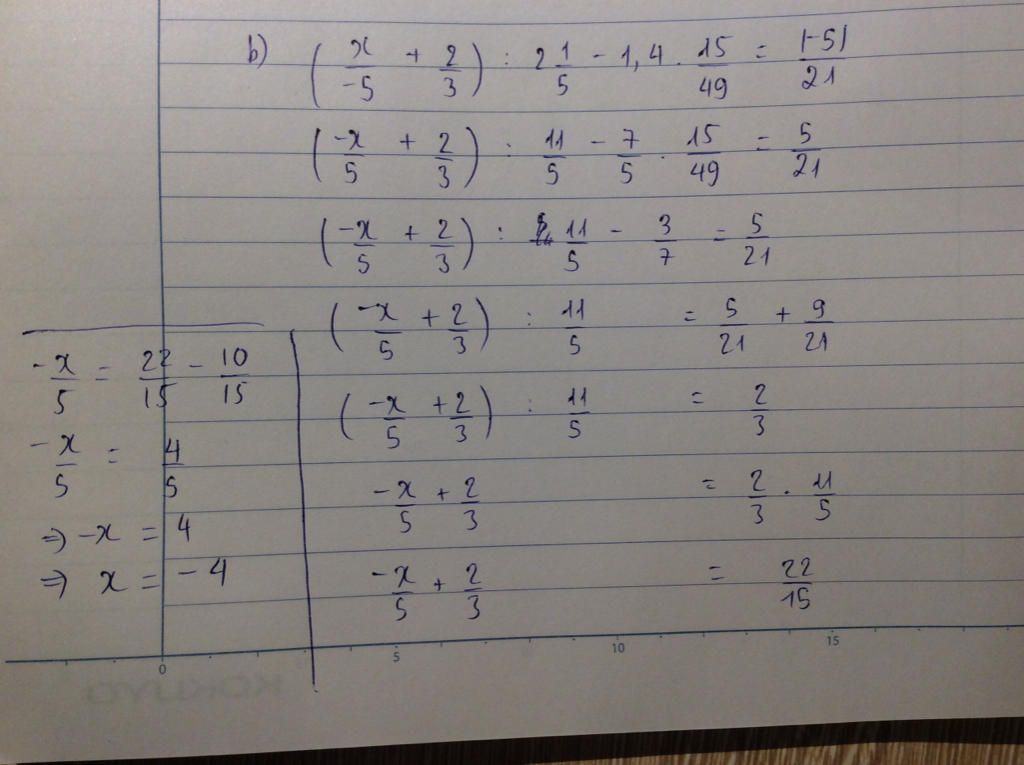 b) (x/-5 + 2/3) : 2 1/5 - 1,4 . 15/49 = |-5|/21
(-x/5 + 2/3) : 11/5 - 7/5 . 15/49 = 5/21
(-x/5 + 2/3) : 11/5 - 3/7 = 5/21
(-x/5 + 2/3) : 11/5 = 5/21 + 9/21
(-x/5 + 2/3) : 11/5 = 2/3
-x/5 + 2/3 = 2/3 . 11/5
-x/5 + 2/3 = 22/15
-x/5 = 22/15 - 10/15
-x/5 = 4/5
=> -x = 4
=> x = -4
0 5 10 15
KOKUYO